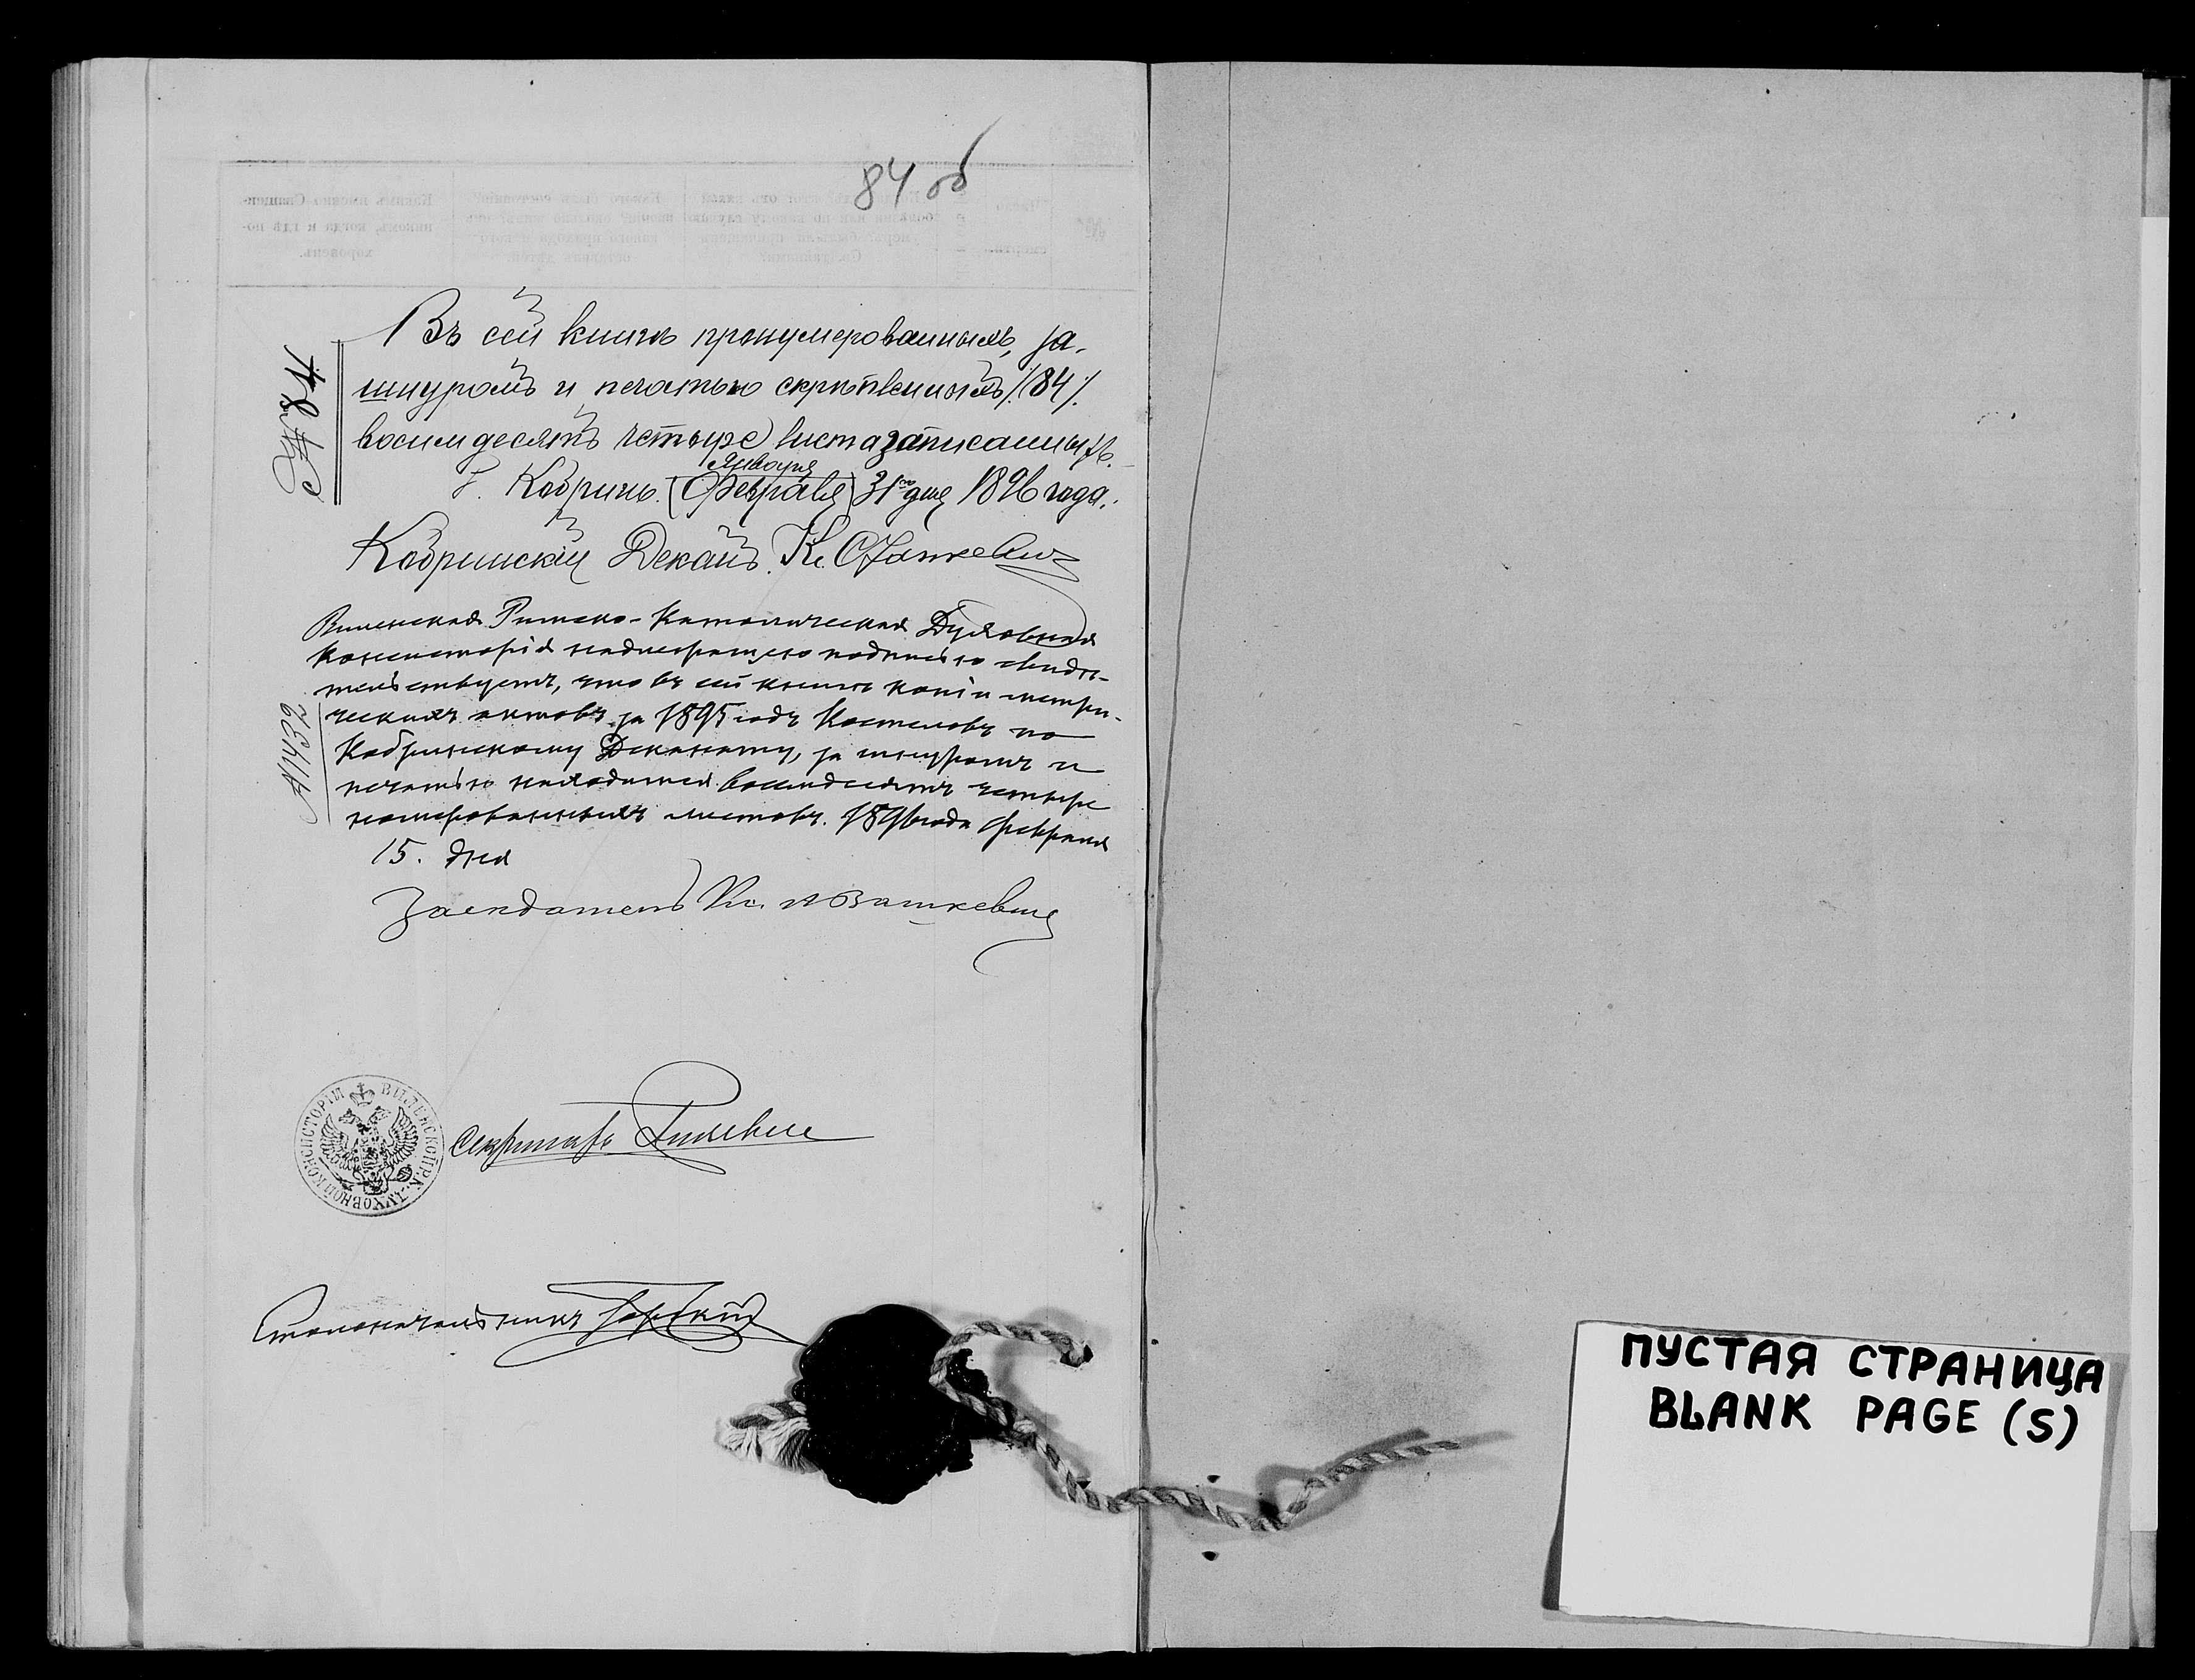 84 об
Въ сей книгѣ пронумерованныхъ, за
шнуромъ и печатью скрѣпленныхъ /:84:/
восемдесятъ четыре листа записанныхъ.
Января
Г. Кобринъ. (Февраля) 31го дня 1896 года.
Кобринскій Деканъ. Кс.
№ 84
Виленская Римско-Католическая Духовная
Консисторія надлежащею подписью свидѣ-
тельствуетъ, что въ сей книгѣ копіи метри-
ческихъ актовъ за 1895 годъ Костеловъ по
Кобринскому Деканату, за шнуромъ и
печатью находится восемдесятъ четыре
номерованныхъ листовъ. 1896 года Февраля
15. дня
№ 1432
Засѣдатель Кс.
ВИЛЕНСКОЙ Р. К. ДУХОВНОЙ КОНСИСТОРІИ
Секретарь
Столоначальникъ
ПУСТАЯ СТРАНИЦА
BLANK PAGE (S)